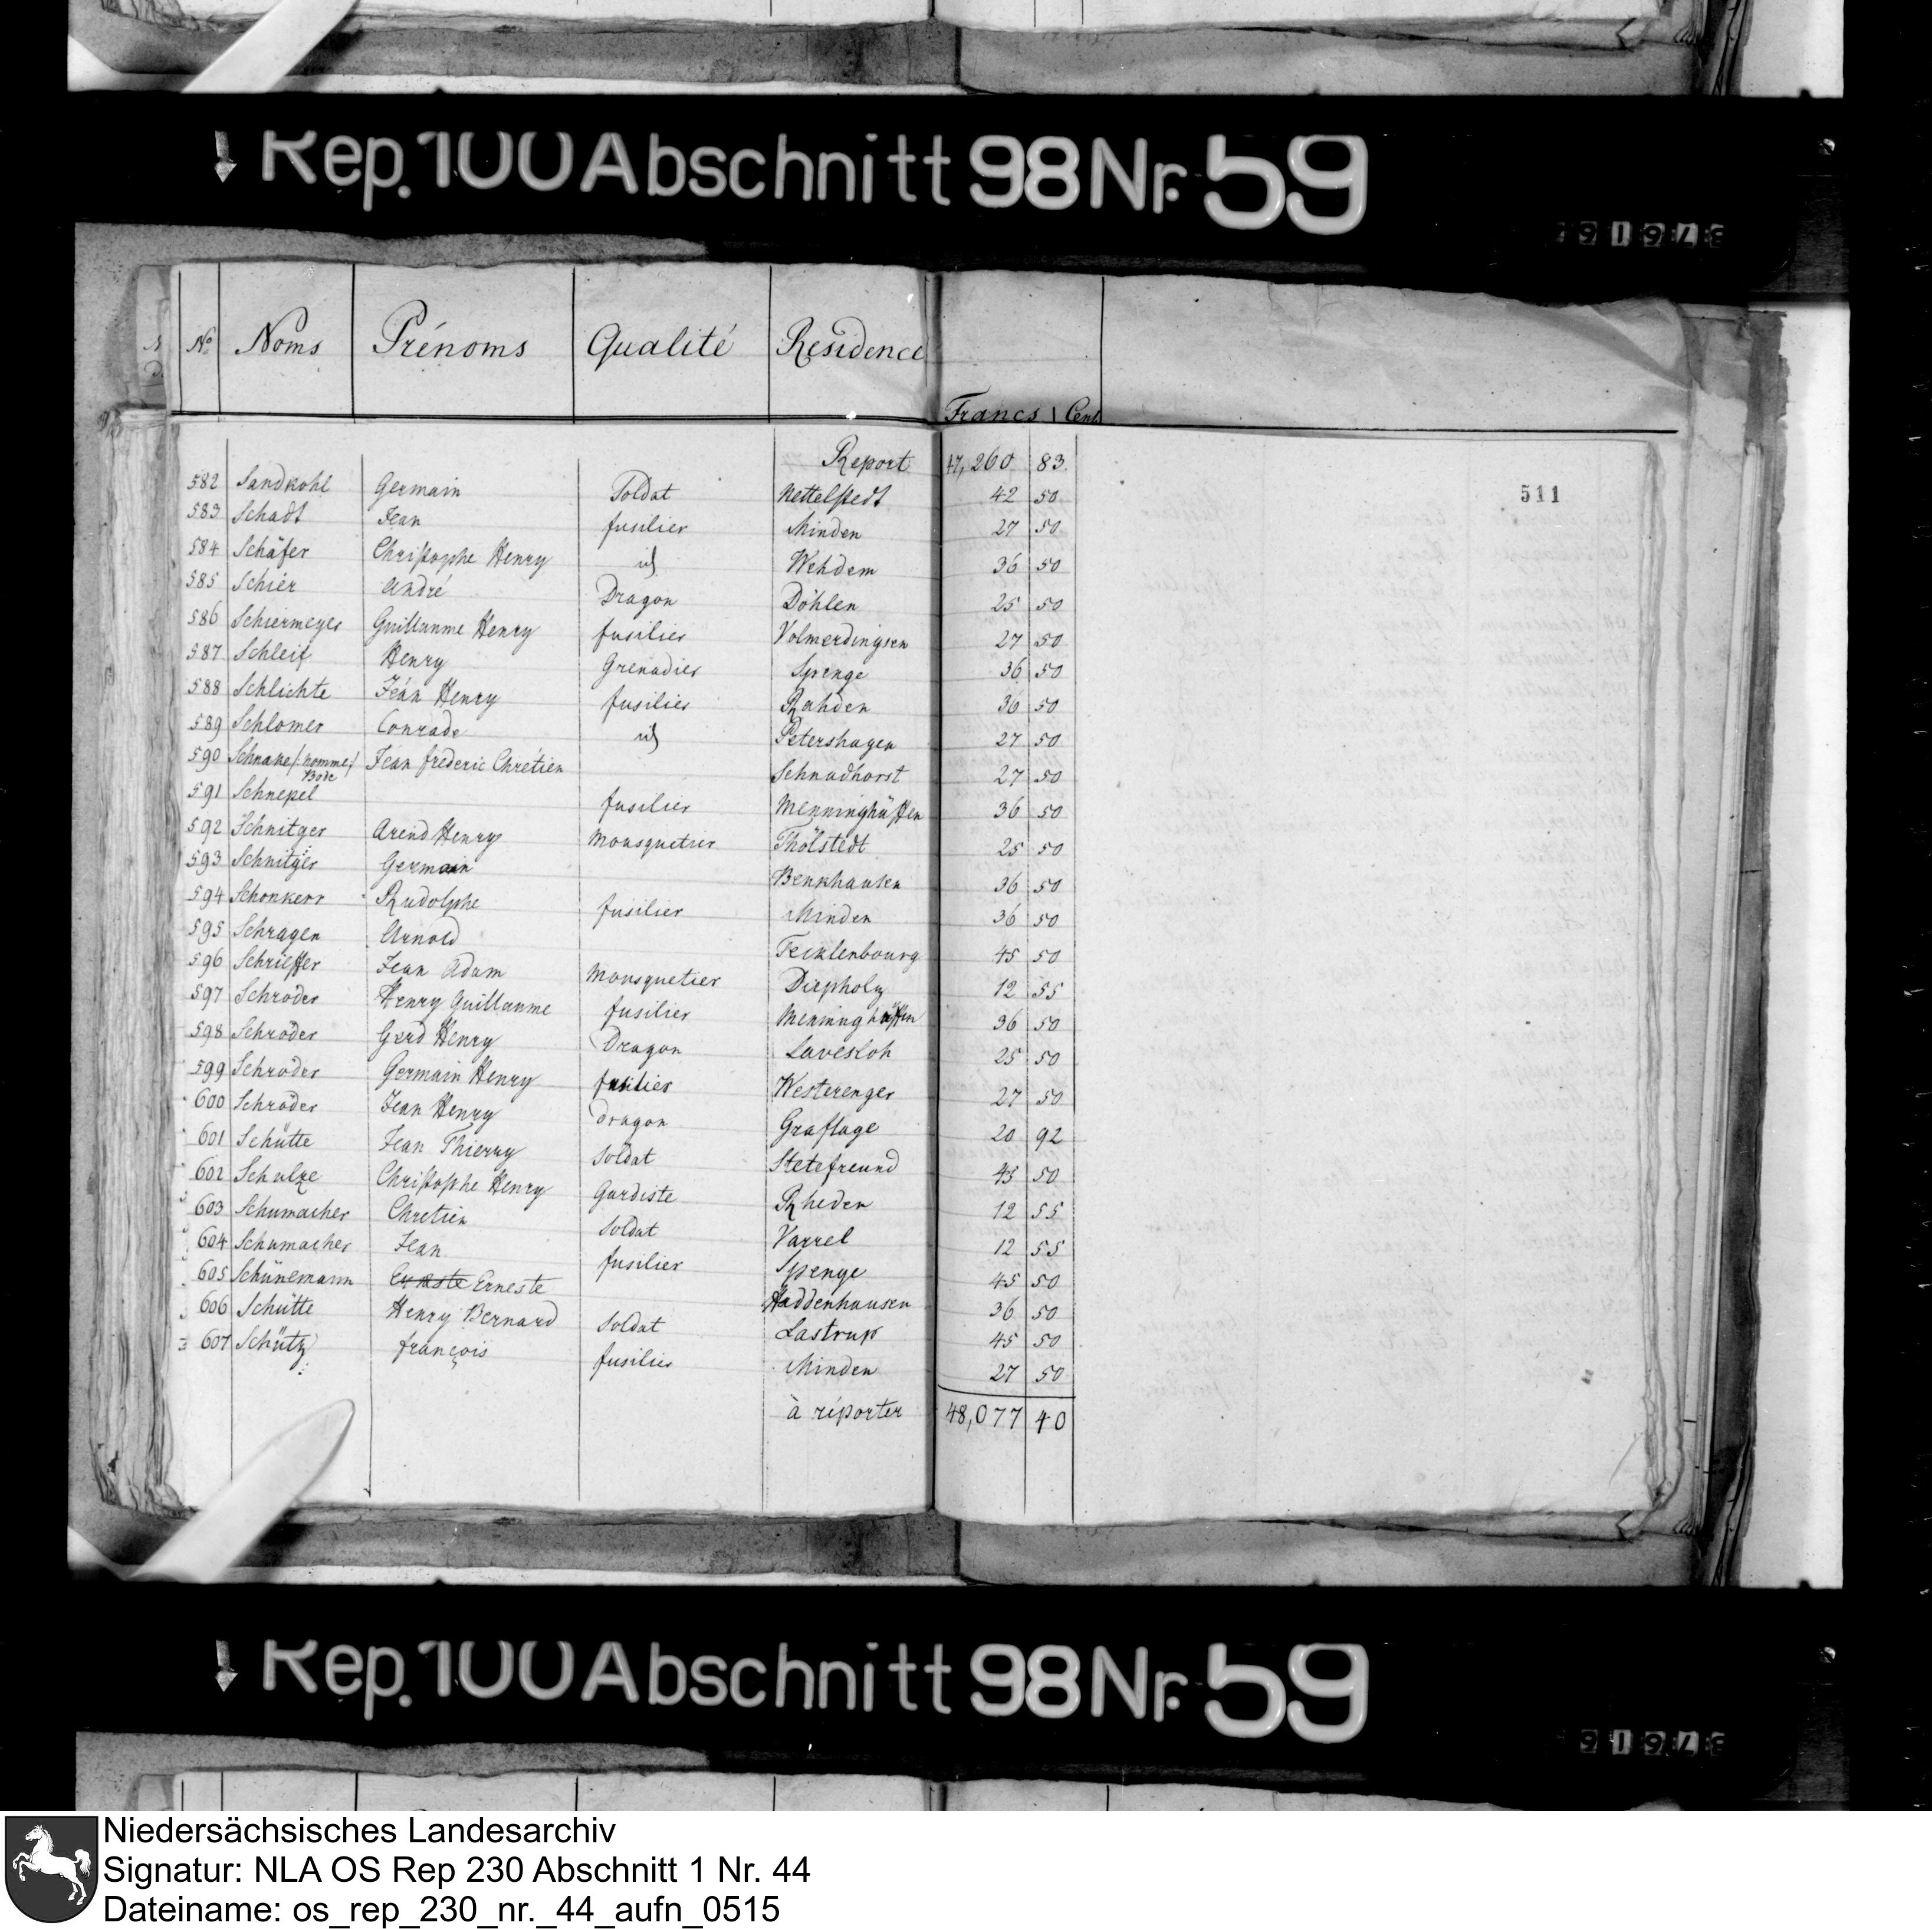 Rep. 100 Abschnitt 98 Nr. 59
No Noms Prénoms Qualité Residence
Francs Cent
Report 47,260 83
511
582 Sandkohl Germain Soldat Nettelstedt 42 50
583 Schadt Jean fusilier Minden 27 50
584 Schäfer Christophe Henry id Wehdem 36 50
585 Schier André Dragon Döhlen 25 50
586 Schiermeyer Guillaume Henry fusilier Volmerdingsen 27 50
587 Schleif Henry Grenadier Spenge 36 50
588 Schlichte Jean Henry fusilier Rahden 36 50
589 Schlomer Conrade id Petershagen 27 50
590 Schnake /: nommé :/ Bode Jean frederic Chrétien Schnadhorst 27 50
591 Schnepel fusilier Menninghüffen 36 50
592 Schnitger Arend Henry Mousquetier Thölstedt 25 50
593 Schnitger Germain Benkhausen 36 50
594 Schonkerr Rudolphe fusilier Minden 36 50
595 Schragen Arnold Tecklenbourg 45 50
596 Schrieffer Jean Adam Mousquetier Diepholz 12 55
597 Schroder Henry Guillaume fusilier Menninghüffen 36 50
598 Schroder Gerd Henry Dragon Lavesloh 25 50
599 Schroder Germain Henry fusilier Westerenger 27 50
600 Schroder Jean Henry Dragon Graflage 20 92
601 Schütte Jean Thierry Soldat Stetefreund 45 50
602 Schulze Christophe Henry Gardiste Rheden 12 55
603 Schumacher Chretien Soldat Varrel 12 55
604 Schumacher Jean fusilier Spenge 45 50
605 Schünemann Erneste Haddenhausen 36 50
606 Schütte Henry Bernard Soldat Lastrup 45 50
607 Schütz françois fusilier Minden 27 50
à réporter 48,077 40
Rep. 100 Abschnitt 98 Nr. 59
Niedersächsisches Landesarchiv
Signatur: NLA OS Rep 230 Abschnitt 1 Nr. 44
Dateiname: os_rep_230_nr._44_aufn_0515